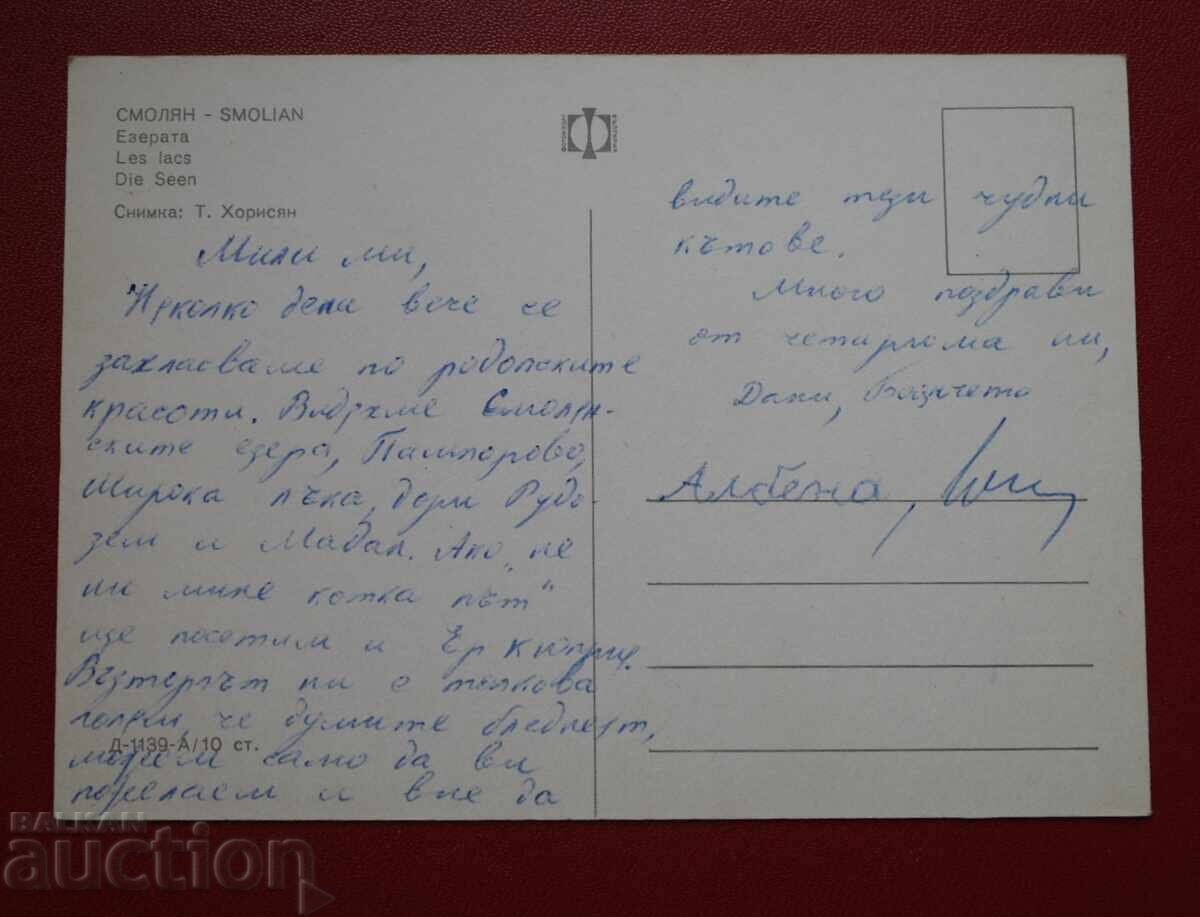 СМОЛЯН - SMOLIAN
Езерата
Les lacs
Die Seen
Снимка: Т. Хорисян
ФОТОИЗДАТ
БЪЛГАРИЯ
Мили ми,
Няколко дена вече се
захласваме по родопските
красоти. Видяхме Смолян-
ските езера, Пампорово,
Широка лъка, дори Рудо-
зем и Мадан. Ако „не
ни мине котка път"
ще посетим и Ер Кюприя.
Възторгът ни е толкова
голям, че думите бледнеят,
можем само да ви
пожелаем и вие да
Д-1139-А/10 ст.
видите тези чудни
кътове.
Много поздрави
от четирима ни,
Дани,
Албена,
BALKAN
auction